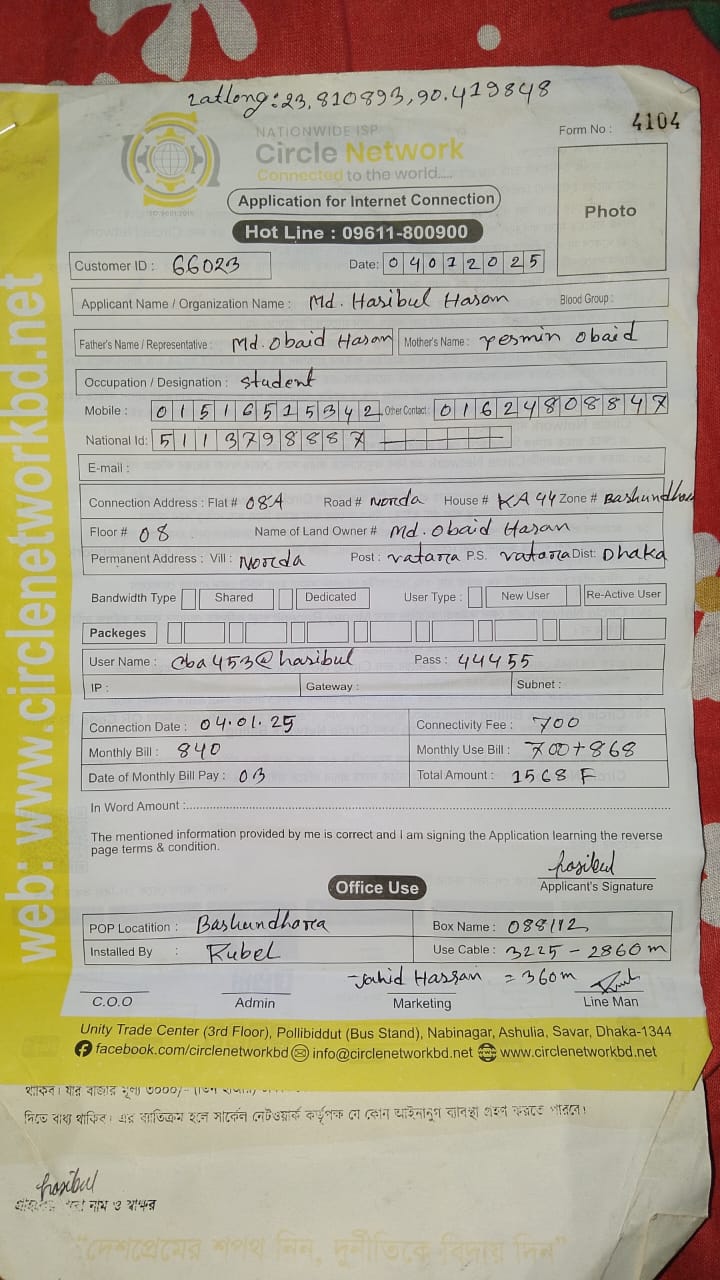 Latlong: 23.810893, 90.419848
NATIONWIDE ISP
Circle Network
Connected to the world.....
Form No : 4104
Application for Internet Connection
Photo
Hot Line : 09611-800900
Customer ID : 66023 Date: 04012025
Applicant Name / Organization Name : Md. Hasibul Hasan Blood Group :
Father's Name / Representative : Md. Obaid Hasan Mother's Name : Yesmin Obaid
Occupation / Designation : Student
Mobile : 01516515342 Other Contact : 01624808847
National Id: 5113798887
E-mail :
Connection Address : Flat # 08A Road # Norda House # KA 44 Zone # Bashundhara
Floor # 08 Name of Land Owner # Md. Obaid Hasan
Permanent Address : Vill : Norda Post : Vatara P.S. Vatara Dist: Dhaka
Bandwidth Type Shared Dedicated User Type : New User Re-Active User
Packeges
User Name : Cba453@hasibul Pass : 44455
IP : Gateway : Subnet :
Connection Date : 04.01.25 Connectivity Fee : 700
Monthly Bill : 840 Monthly Use Bill : 700+868
Date of Monthly Bill Pay : 03 Total Amount : 1568 F
In Word Amount :
The mentioned information provided by me is correct and I am signing the Application learning the reverse
page terms & condition.
hasibul
Applicant's Signature
Office Use
POP Locatition : Bashundhora Box Name : 088/12
Installed By : Rubel Use Cable : 3225 - 2860 m
Jahid Hassan = 360m
C.O.O Admin Marketing Line Man
Unity Trade Center (3rd Floor), Pollibiddut (Bus Stand), Nabinagar, Ashulia, Savar, Dhaka-1344
facebook.com/circlenetworkbd info@circlenetworkbd.net www.circlenetworkbd.net
web: www.circlenetworkbd.net
থাকিব। যার বাজার মূল্য ৩০০০/-
দিতে বাধ্য থাকিব। এর ব্যতিক্রম হলে সার্কেল নেটওয়ার্ক কর্তৃপক্ষ যে কোন আইনানুগ ব্যবস্থা গ্রহণ করতে পারবে।
hasibul
নাম ও স্বাক্ষর
"দেশপ্রেমের শপথ নিন, দুর্নীতিকে বিদায় দিন"